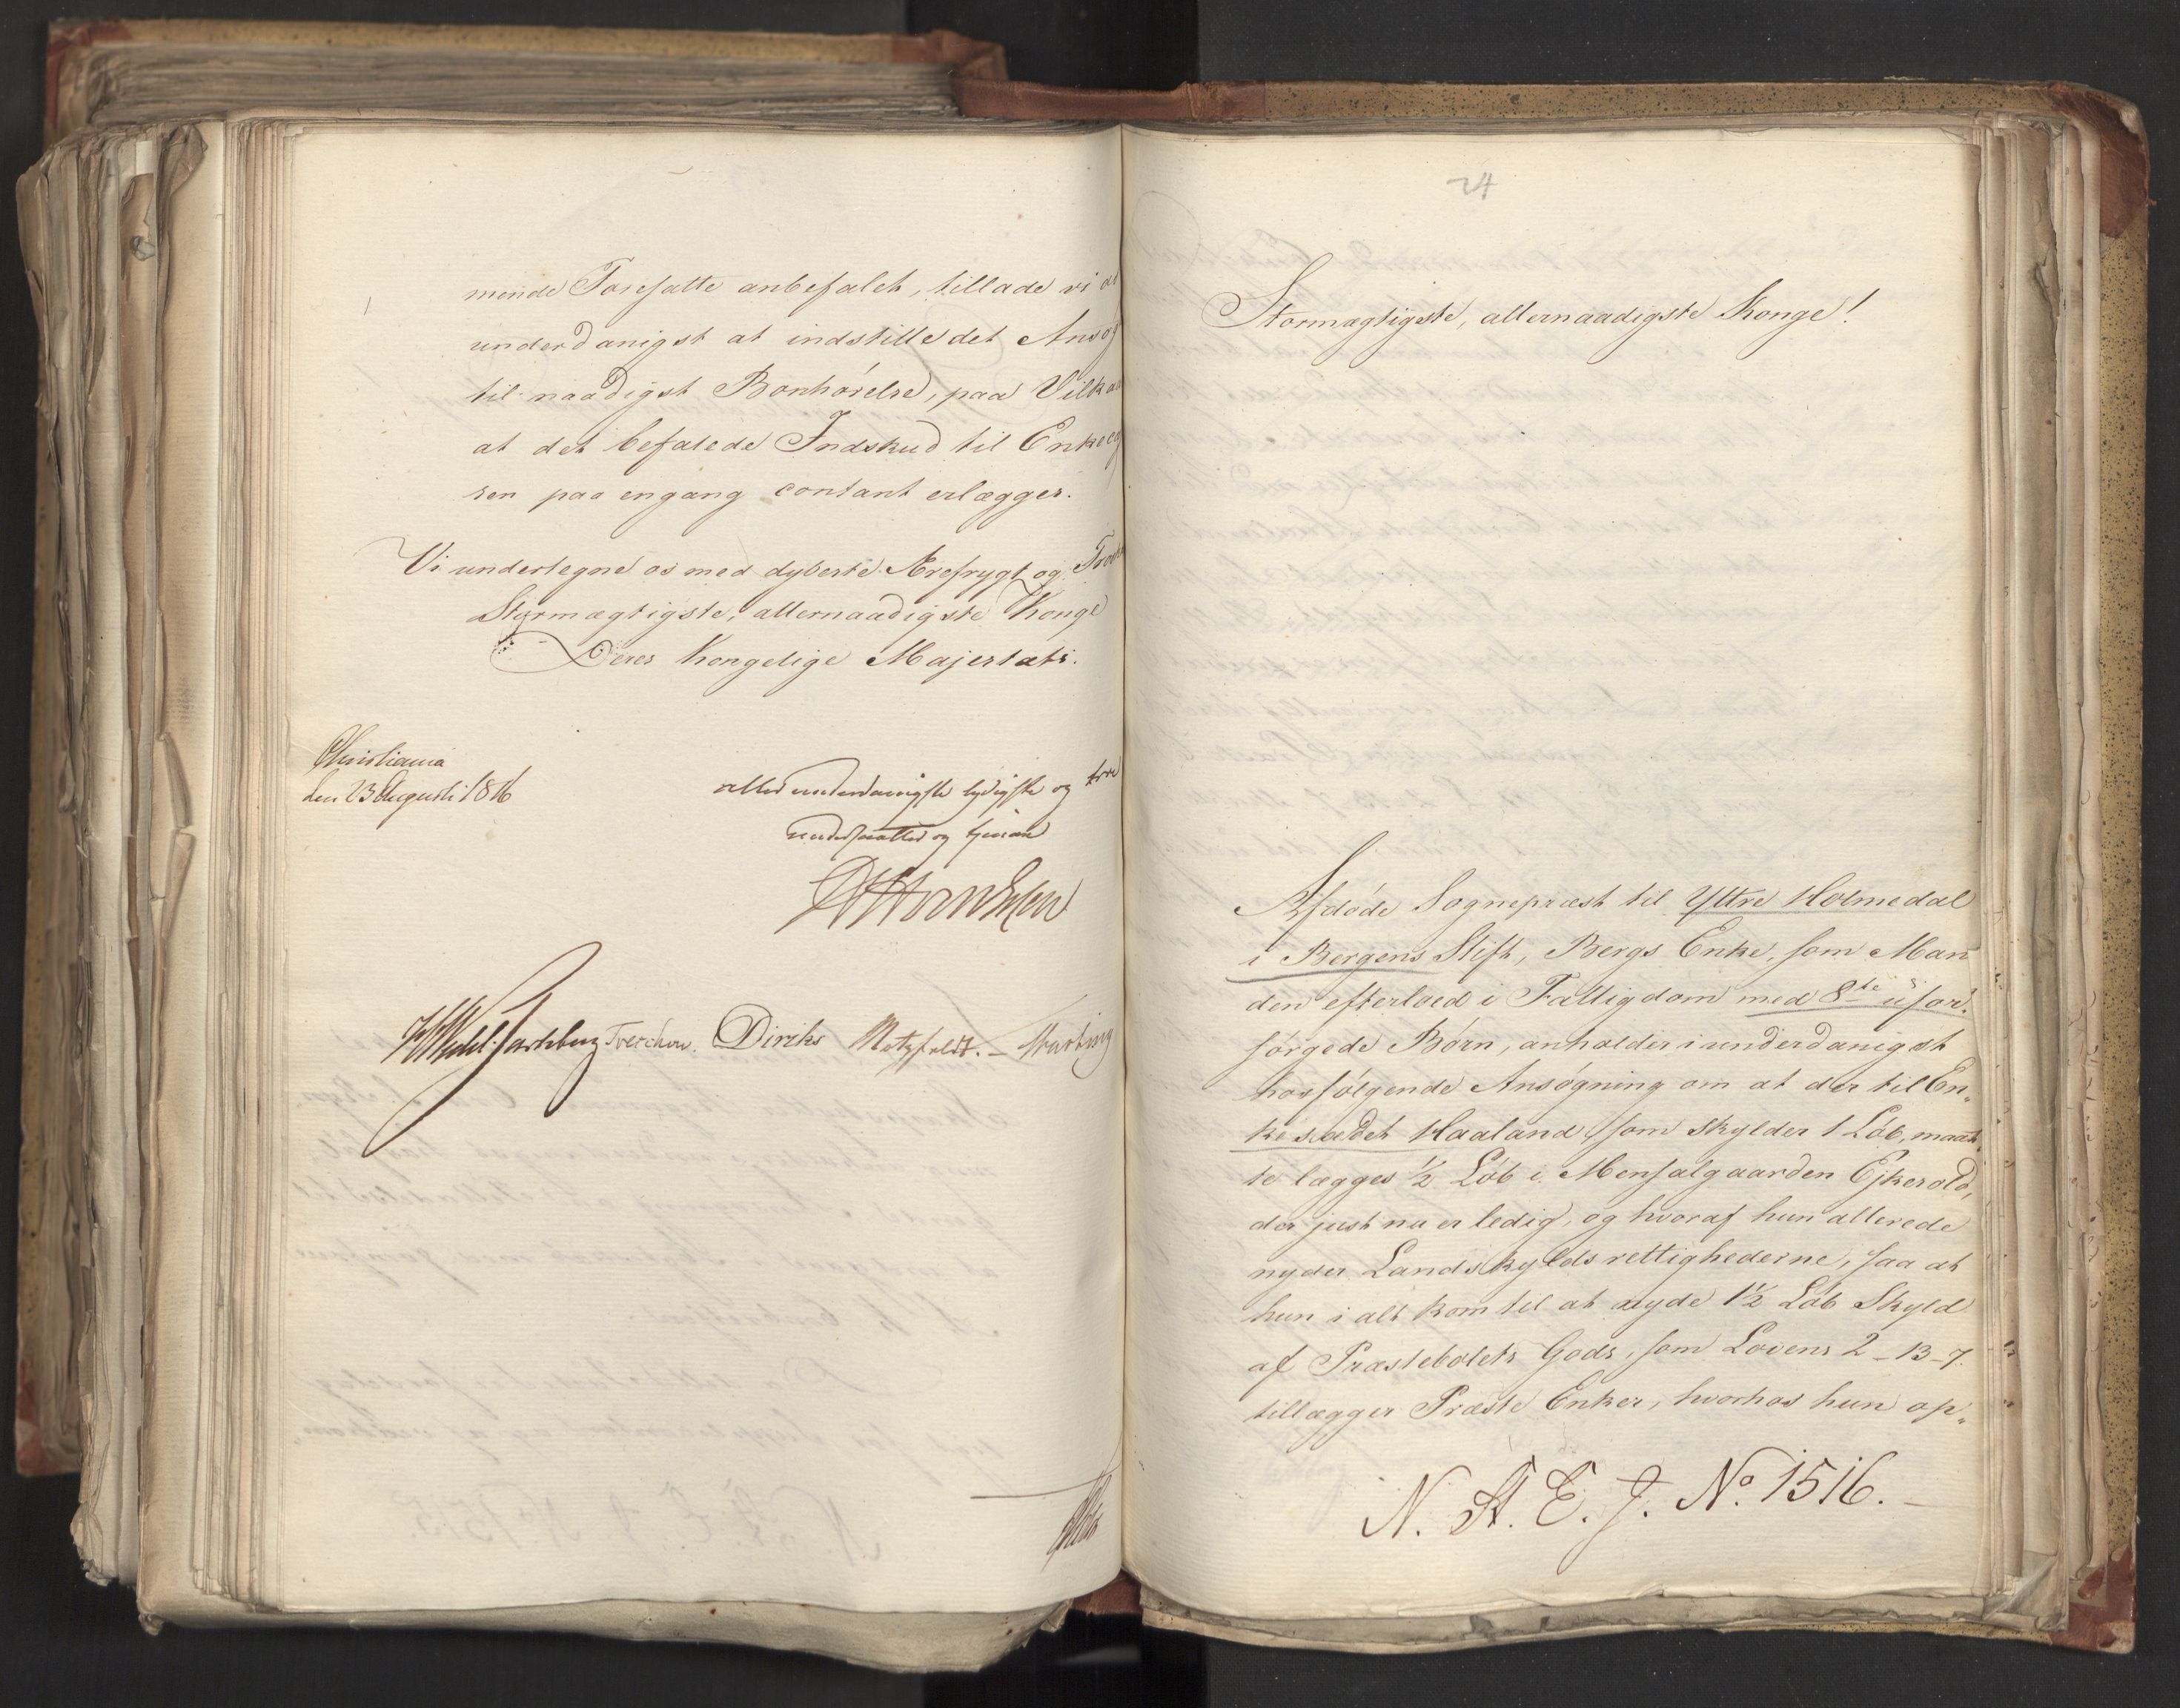 mende Foresatte anbefalet, tillade vi
underdanigst at indstille det Ansøg
til naadigst Bønhørelse, paa Vilkaa
at det befalede Indskud til Enkeca
sen paa engang contant erlægges.
Vi undertegne os med dybeste Ærefrygt og Trosk
Stormægtigste, allernaadigste Konge
Deres Kongelige Majestæts.
Christiania
den 23 Augusti 1816
allerunderdanigste lydigste og troe
undersaatter og tjenere
Wedel Jarlsberg Treschow. Diriks Motzfeldt. –
24
Stormægtigste, allernaadigste Konge!
Afdøde Sognepræst til Yttre Holmedal
i Bergens Stift, Bergs Enke, som Man
den efterloed i Fattigdom med 8te ufor„
sørgede Børn, anholder i underdanigst
hosfølgende Ansøgning om at der til En„
kesædet Haaland, som skylder 1 Løb, maat
te lægges ½ Løb i Mensalgaarden Ejkerold,
der just nu er ledig, og hvoraf hun allerede
nyder Landskyldsrettighederne, saa at
hun i alt kom til at nyde 1½ Løb Skyld
af Præstebolets Gods, som Lovens 2–13–7.
tillægger Præste Enker, hvorhos hun op„
N. St. E. J. No. 1516. –